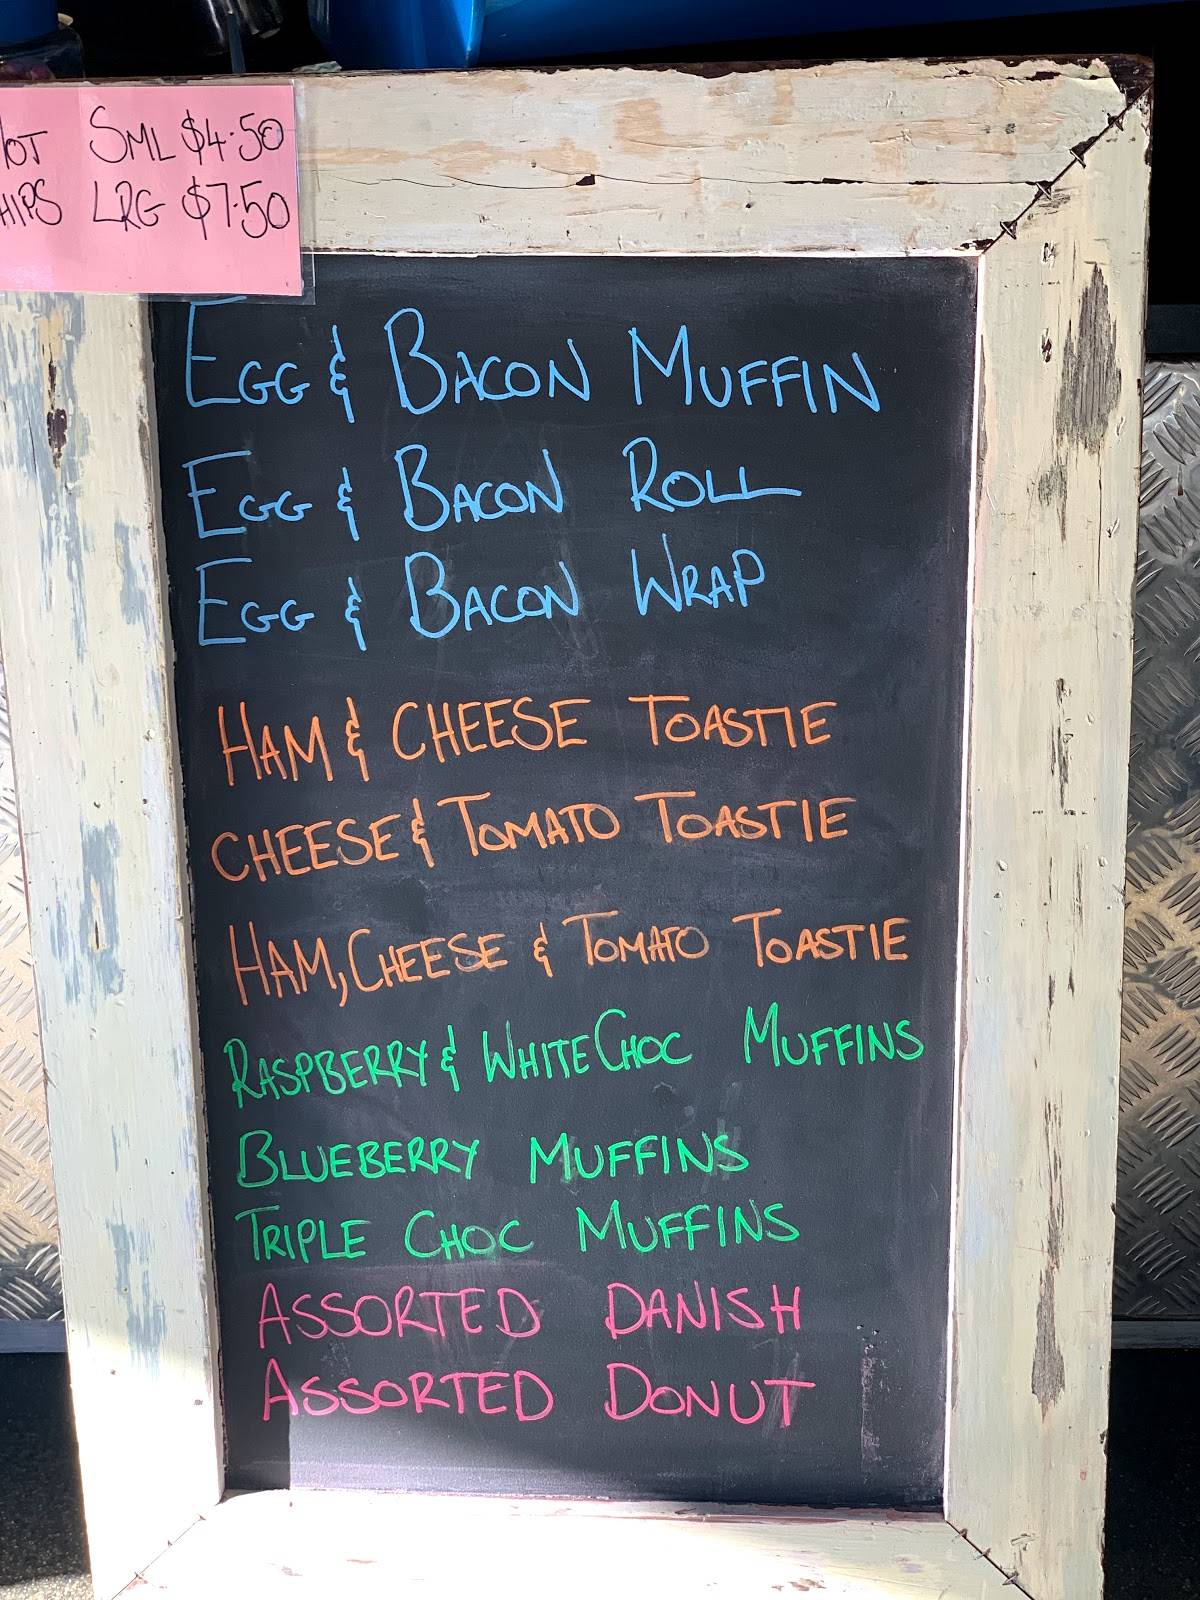 SML $4.50
LRG $7.50
EGG & BACON MUFFIN
EGG & BACON ROLL
EGG & BACON WRAP
HAM & CHEESE TOASTIE
CHEESE & TOMATO TOASTIE
HAM, CHEESE & TOMATO TOASTIE
RASPBERRY & WHITE CHOC MUFFINS
BLUEBERRY MUFFINS
TRIPLE CHOC MUFFINS
ASSORTED DANISH
ASSORTED DONUT